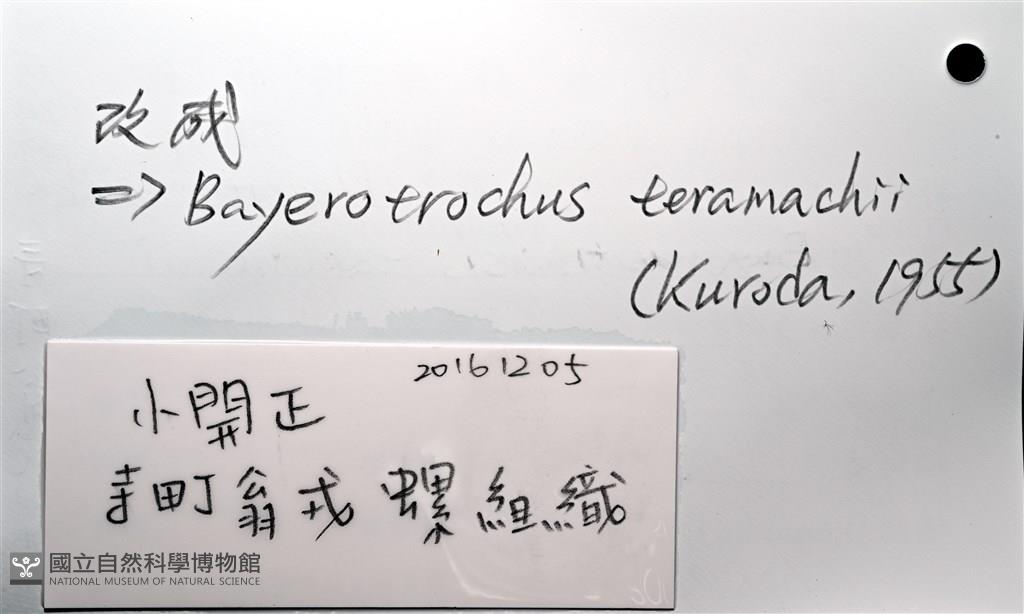 改成
=> Bayerotrochus teramachii
(Kuroda, 1955)
20161205
小開正
寺町翁戎螺組織
國立自然科學博物館
NATIONAL MUSEUM OF NATURAL SCIENCE